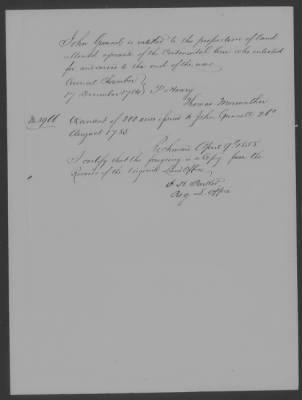 John Gunnell is entitled to the proportion of land
allowed a private of the Continental line who enlisted
for and served to the end of the war
Council Chamber }
17 December 1784 } P. Henry
Thomas Meriwether
A warrant of 200 acres issued to John Gunnell 20th
August 1785
Richmond April 9th 1855
I certify that the foregoing is a Copy from the
Records of the Virginia Land Office
S H Parker
Reg L. Office